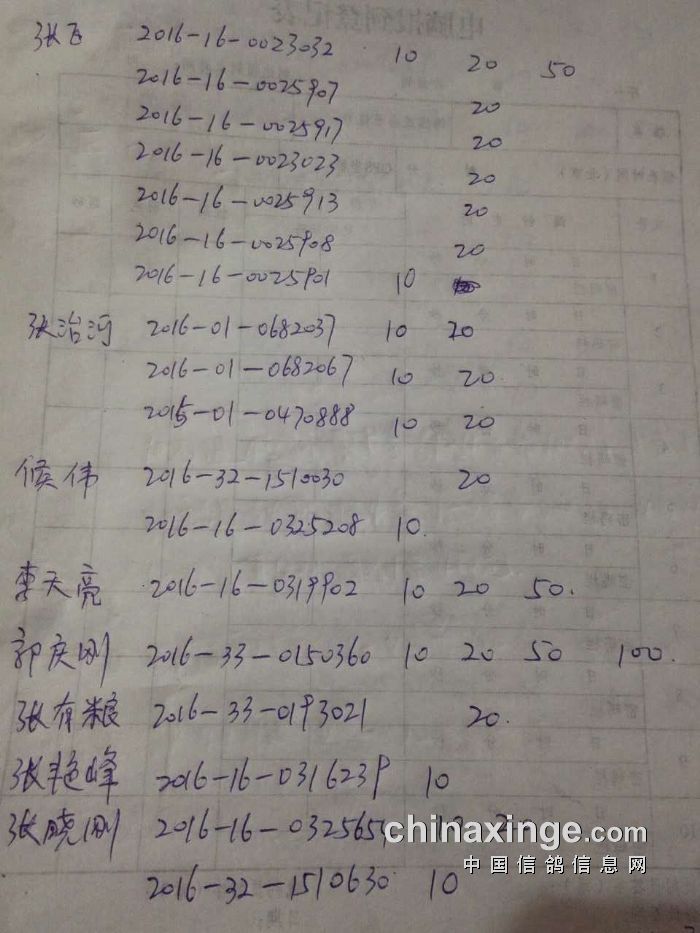 张飞 2016-16-0023032 10 20 50
2016-16-0025907 20
2016-16-0025917 20
2016-16-0023023 20
2016-16-0025913 20
2016-16-0025908 20
2016-16-0025901 10
张治河 2016-01-0682037 10 20
2016-01-0682067 10 20.
2015-01-0470888 10 20
候伟 2016-32-1510030 20
2016-16-0325208 10.
李天亮 2016-16-0319902 10 20 50.
郭庆刚 2016-33-0150360 10 20 50 100.
张有粮 2016-33-0193021 20.
张艳峰 2016-16-0316239 10
张晓刚
chinaxinge.com
中国信鸽信息网
2016-32-1510630 10